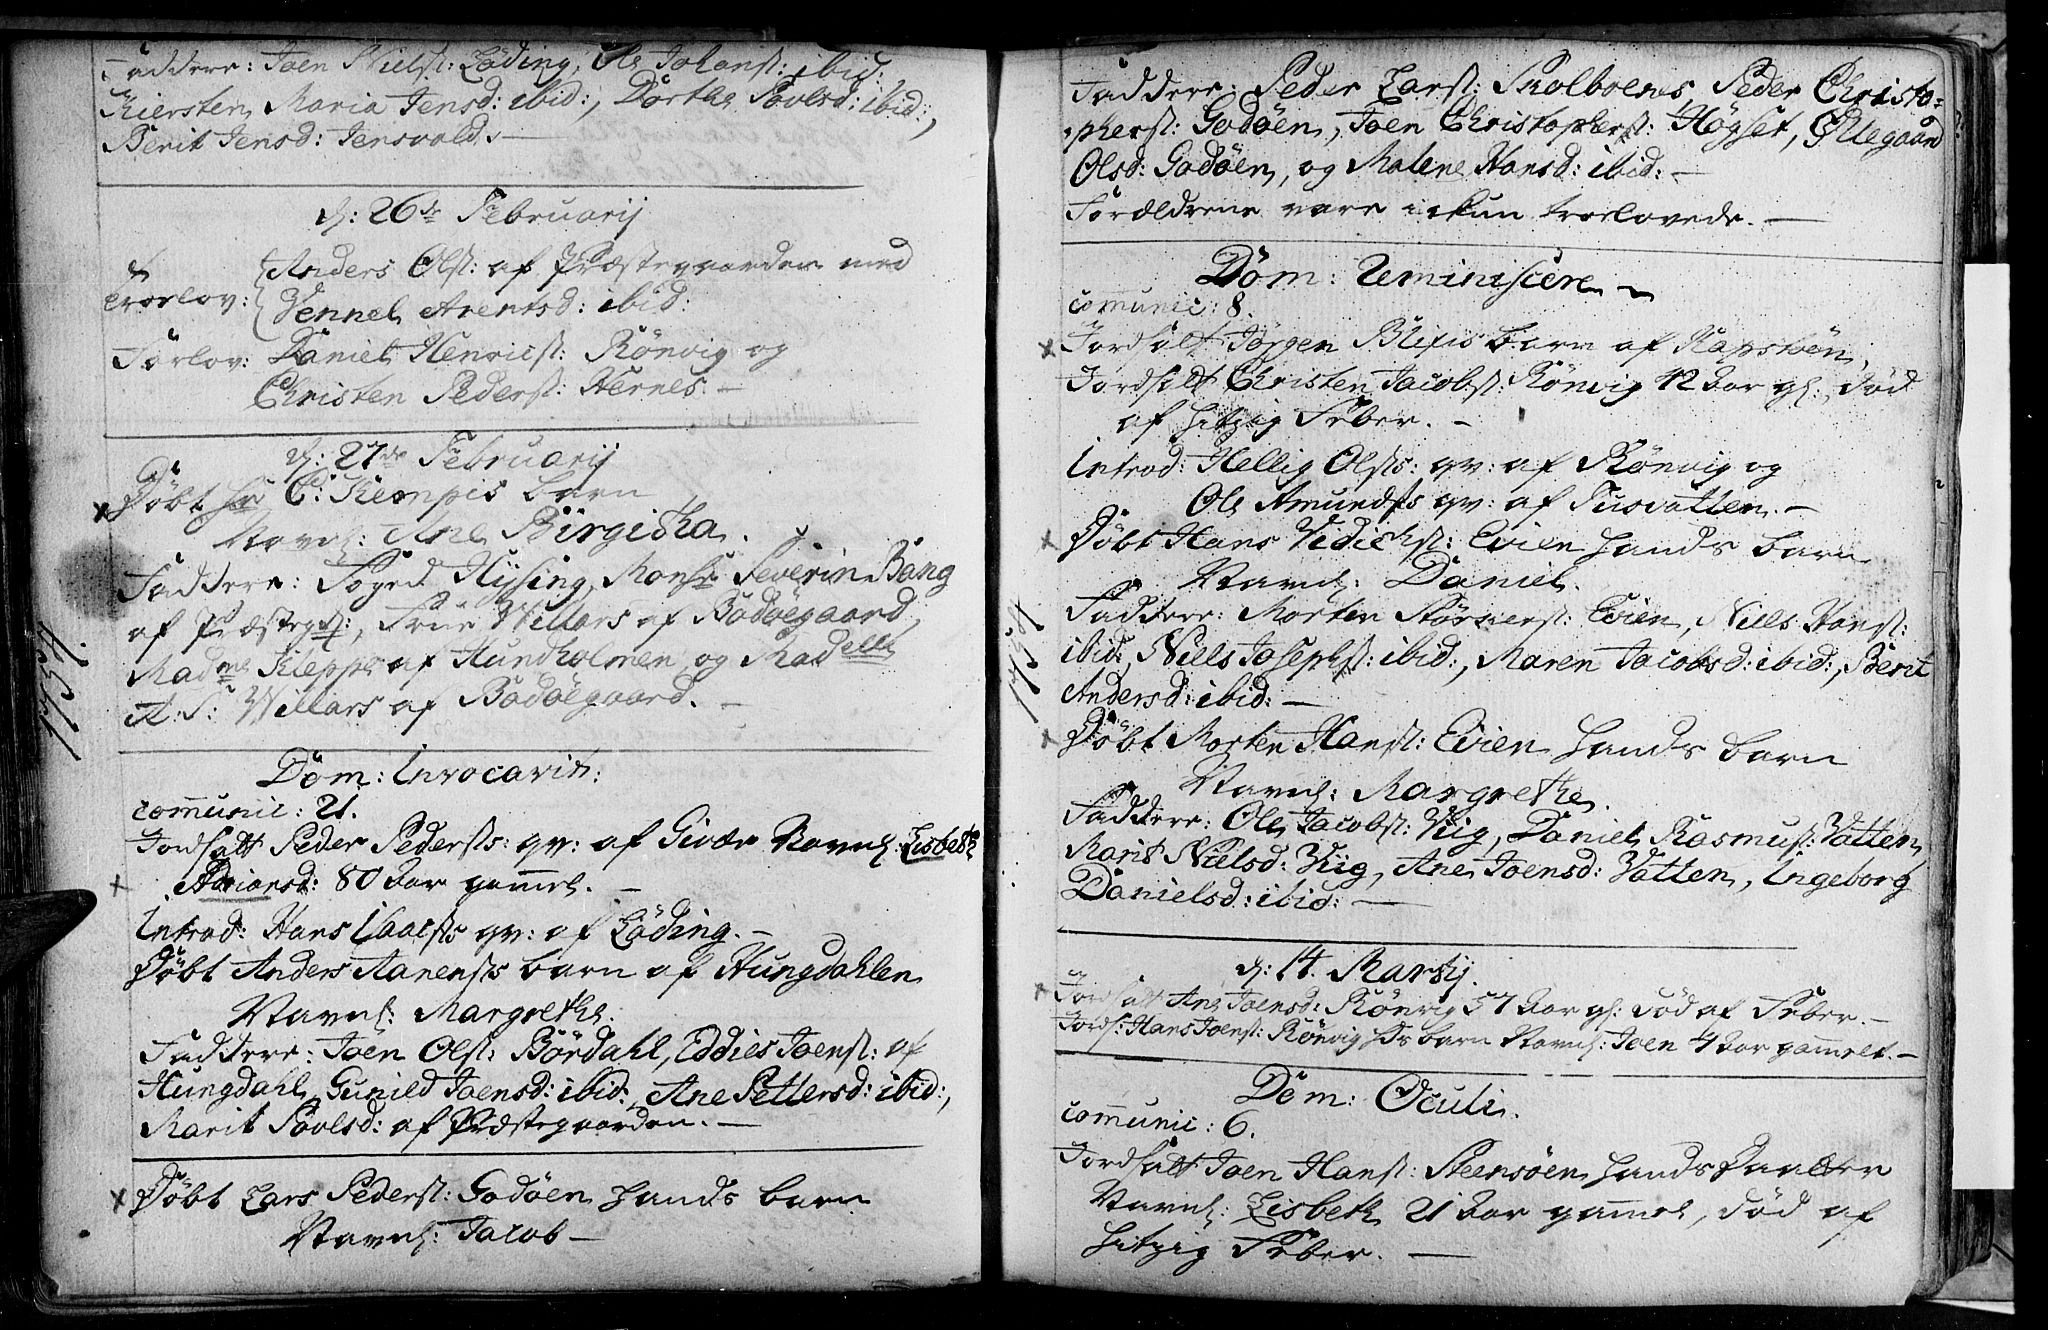 Faddere: Joen Nielst: Löding, Ole Johanst: ibid:
Kiersten Maria Jensd: ibid:, Dorthe Povlsd: ibid:,
Berit Jensd: Jensvold. —
d: 26de Februarij
Troelov: Anders Olst: af Præstegaarden med
Pennel Arentsd: ibid:
Forlov: Daniel Henricst: Rönvig og
Christen Pederst: Hernes. —
d: 27de Februarij
Döbt hr C: Kempis barn
Navnl: Ane Birgitha.
Faddere: Foged Hysing, Monsr Severin Bang
af Præsteg:, Frue Willars af Bodöegaard,
Madme Kleppe af Hundholmen, og Madelle
A: S: Willars af Bodöegaard. —
Dom: Invocavit:
com̄unic: 21.
Jordfæstt Peder Pedersts: qv: af Givær Navnl: Lisbeth
Adriansd: 80 Aar gam̄el. —
Introd: Hans Isaacsts qv: af Löding. —
Döbt Anders Aanensts barn af Hungdahlen
Navnl: Margrethe.
Faddere: Joen Olst: Bördahl, Eddies Joenst: af
Hungdahl, Gunild Joensd: ibid:, Ane Pettersd: ibid:,
Marit Povlsd: af Præstegaarden. —
Döbt Lars Pederst: Godöen hands barn
Navnl: Jacob —
1751.
Faddere: Peder Larst: Skolboenes, Peder Christo=
pherst: Godöen, Joen Christopherst: Högset, Ellegaard
Olsd: Godöen, og Malene Hansd: ibid: —
Forældrene vare ickun troelovede. —
Dom: Reminiscere
comunic: 8.
Jordfæstt Jörgen Blixis barn af Kapstöen,
Jordfæstt Christen Jacobst: Rönvig 42 Aar gl:, död
af hitzig Feber. —
Introd: Hellig Olsts: qv: af Rönvig og
Ole Amundsts qv: af Tusvatten. —
Döbt Hans Didichst: Evien hands barn
Navnl: Daniel.
Faddere: Morten Evien, Niels Hanst:
ibid:, Niels Josephst: ibid:, Maren Jacobsd: ibid:, Berit
Andersd: ibid: —
Döbt Morten Hanst: Evien hands barn
Navnl: Margrethe.
Faddere: Ole Jacobst: Viig, Daniel Rasmust: Vatten,
Marit Nielsd: Viig, Ane Joensd: Vatten, Ingeborg
Danielsd: ibid: —
d: 14. Martij.
Jordfæstt Ane Joensd: Rönvig 57 Aar gl: död af Feber. —
Jordf: Hans Joenst: Rönvig hs barn Navnl: Joen 4 Aar gammelt. —
Dom: Oculi.
com̄unic: 6.
Jordfæstt Joen Hanst: Steensöen hands Daatter
Navnl: Lisbeth 21 Aar gam̄el, död af
hitzig Feber. —
1751.